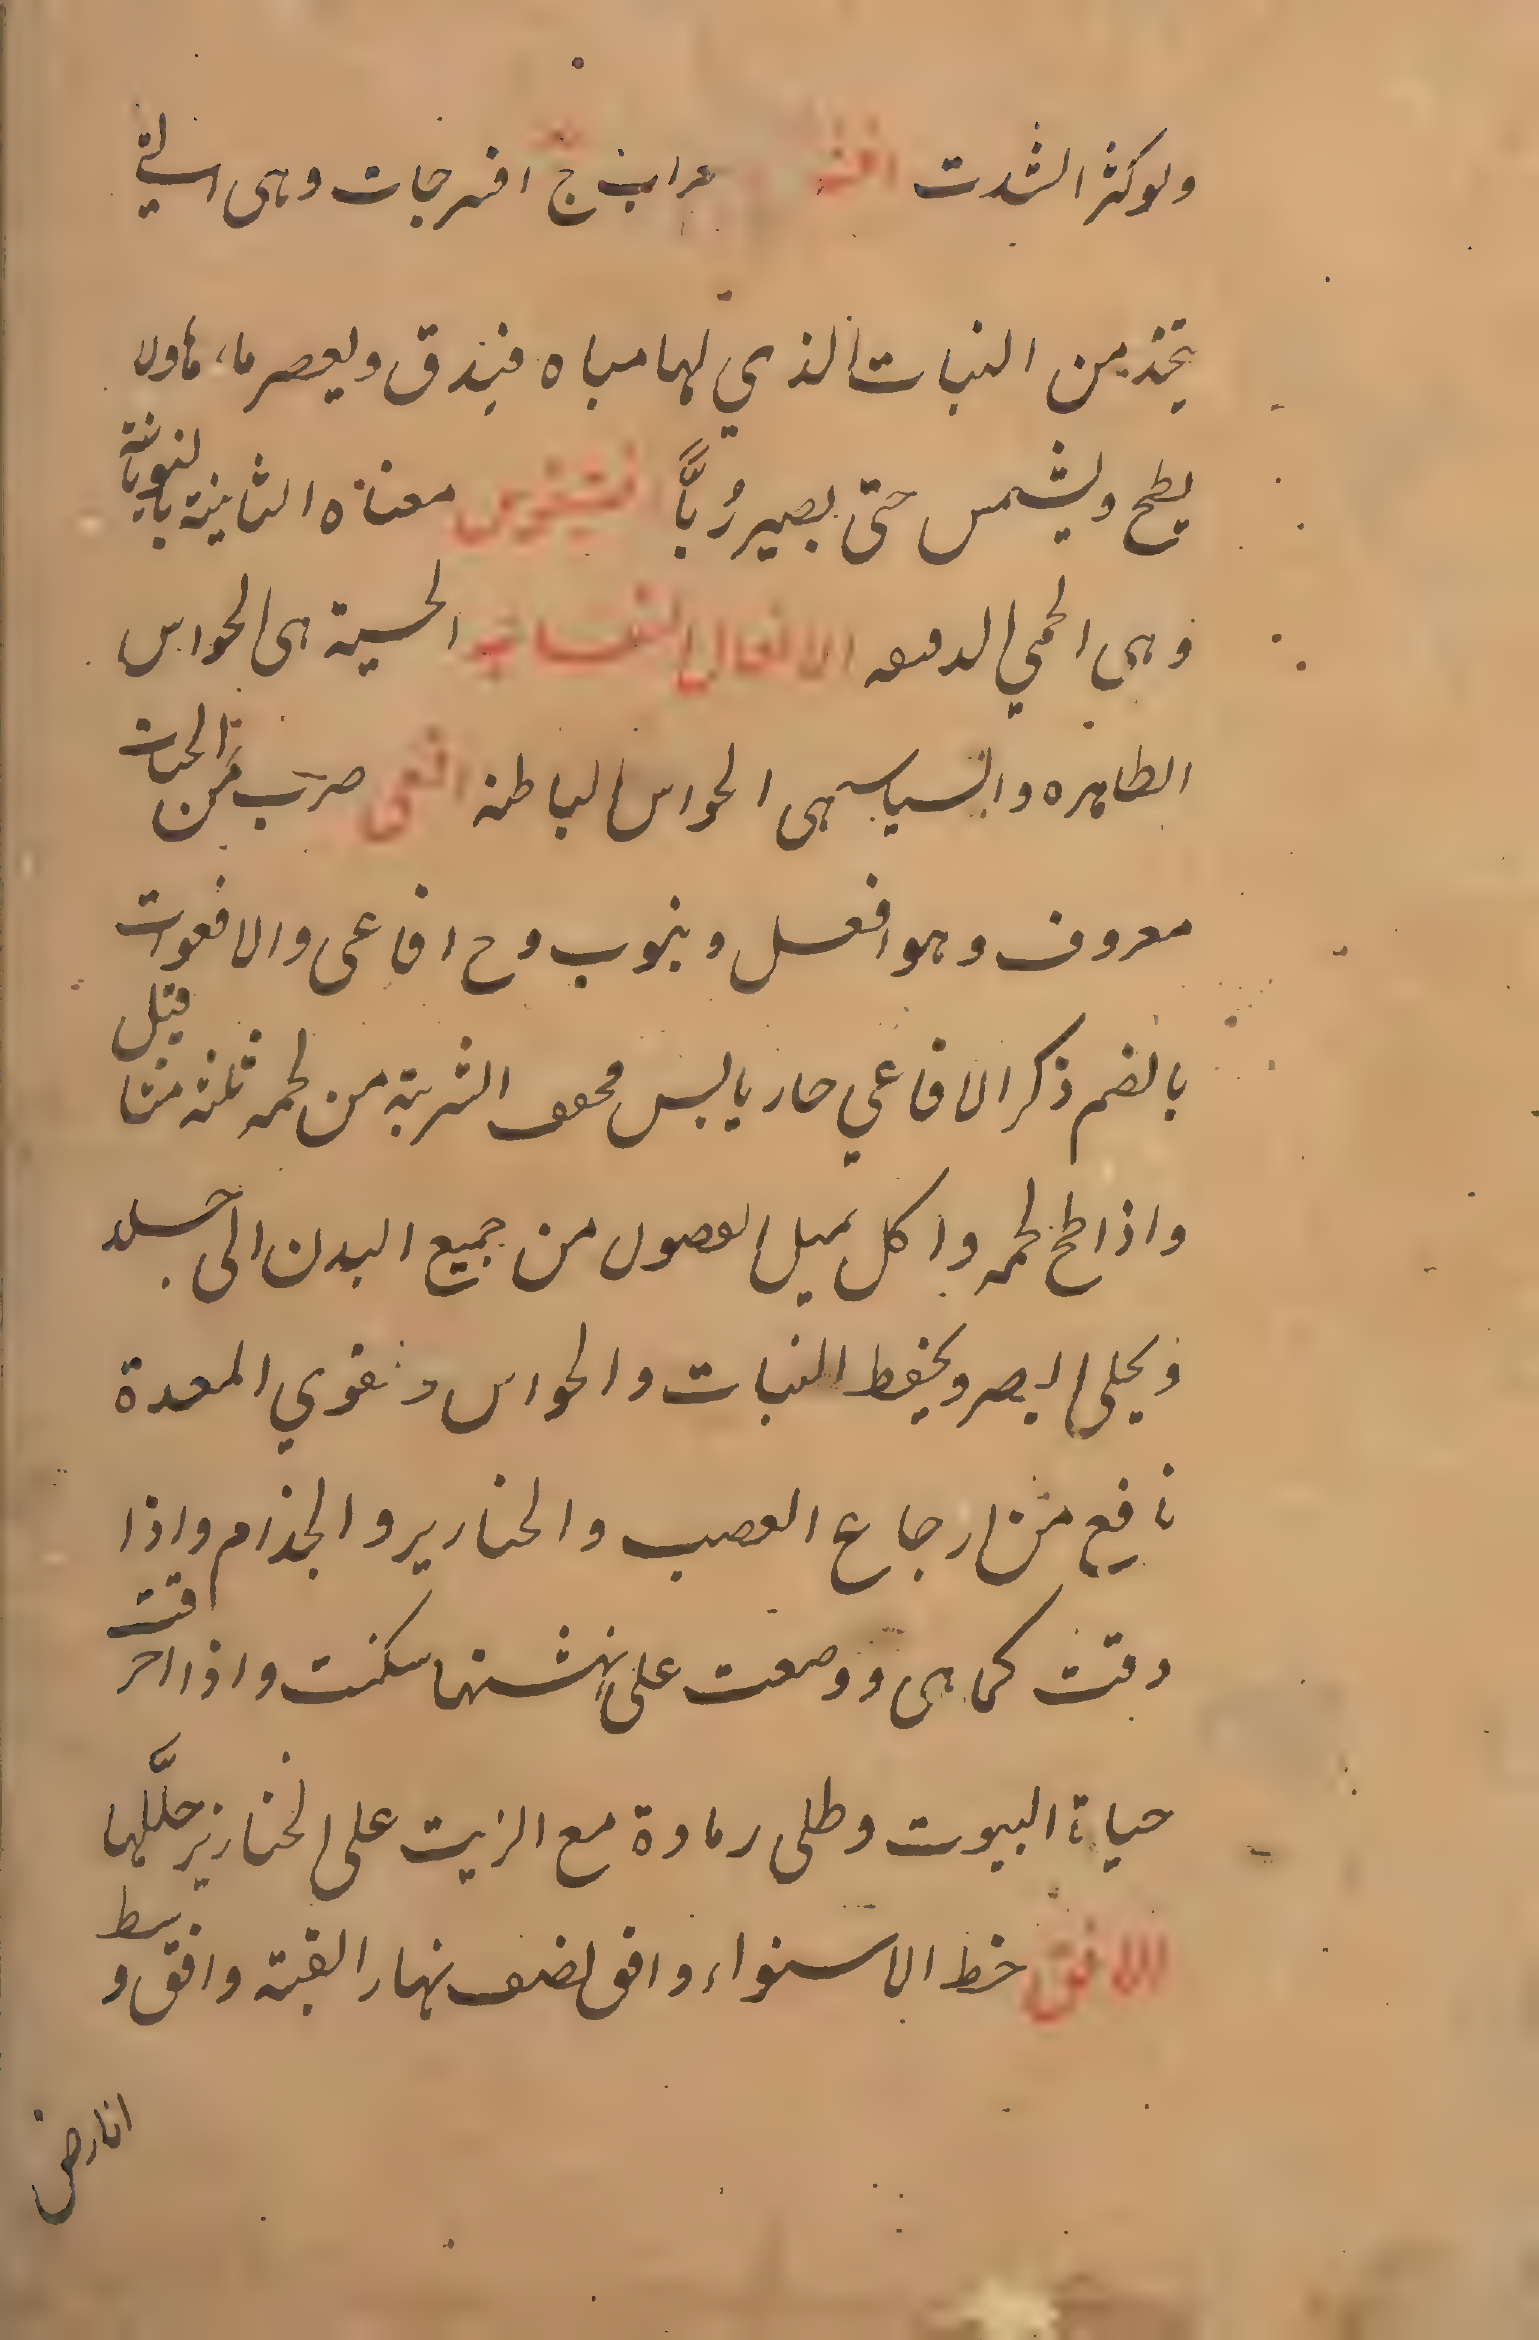 ولوكثر الشدت افشرج معرابه ج افشرجات وهى التى
يتخذ من النبات الذي لها مياه فيدق ويعصر ماءها ولا
يطبخ ويشمس حتى يصير رُبًّا معناه الثابتة باليونانية
وهى الحمي الدقيقه الافعال النفسانيه الحسية هى الحواس
الظاهره والسياسيه هى الحواس الباطنه افعى ضرب من الحيات
معروف وهو افعل وينوب وج افاعى والافعوان
بالضم ذكر الافاعي حار يابس مجفف الشربة من لحمه ثلثه مثاقيل
واذا طبخ لحمه واكل يميل الفصول من جميع البدن الى الجلد
ويجلى البصر ويحفظ الشباب والحواس ويقوي المعدة
نافع من اوجاع العصب والخنازير والجذام واذا
دقت كما هى ووضعت على نهشتها سكنت واذا احرقت
حياة البيوت وطلى رماده مع الزيت على الخنازير حلّلها
الافق خط الاستواء وافق نصف نهار القبة وافق وسط